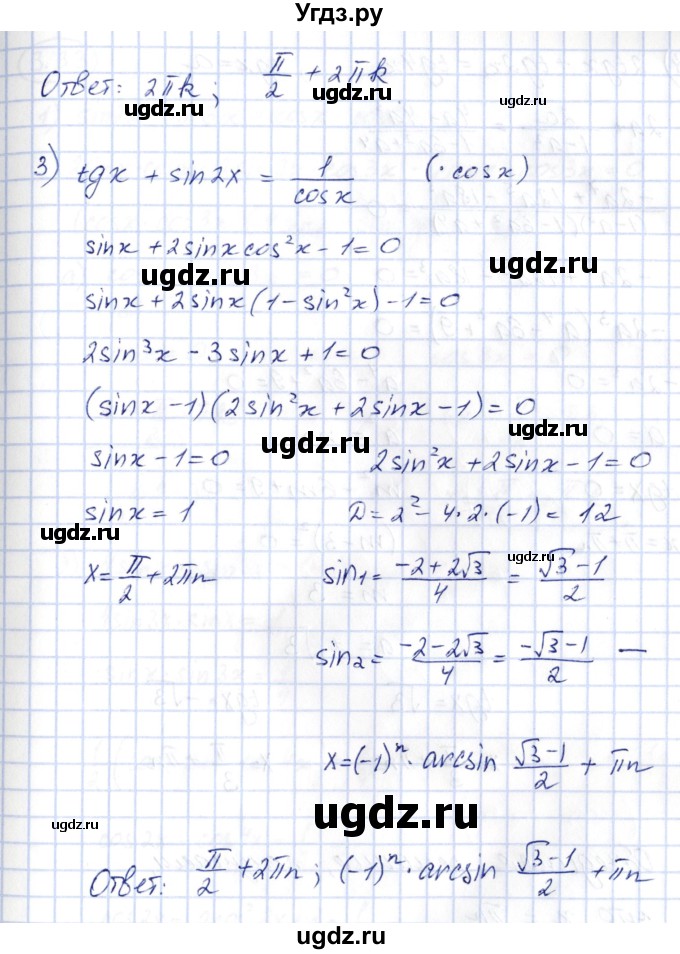 Угдз.ру
Ответ: 2πk; π/2 + 2πk
ugdz.ru ugdz.ru
3) tgx + sin2x = 1/cosx (·cosx)
sinx + 2sinxcos²x - 1 = 0
ugdz.ru ugdz.ru
sinx + 2sinx(1 - sin²x) - 1 = 0
2sin³x - 3sinx + 1 = 0
(sinx - 1)(2sin²x + 2sinx - 1) = 0
ugdz.ru ugdz.ru
sinx - 1 = 0 2sin²x + 2sinx - 1 = 0
sinx = 1 D = 2² - 4·2·(-1) = 12
ugdz.ru ugdz.ru
x = π/2 + 2πn sin₁ = (-2 + 2√3)/4 = (√3 - 1)/2
sin₂ = (-2 - 2√3)/4 = (-√3 - 1)/2 —
ugdz.ru ugdz.ru
x = (-1)ⁿ · arcsin (√3 - 1)/2 + πn
ugdz.ru ugdz.ru
Ответ: π/2 + 2πn; (-1)ⁿ · arcsin (√3 - 1)/2 + πn
ugdz.ru ugdz.ru
ugdz.ru